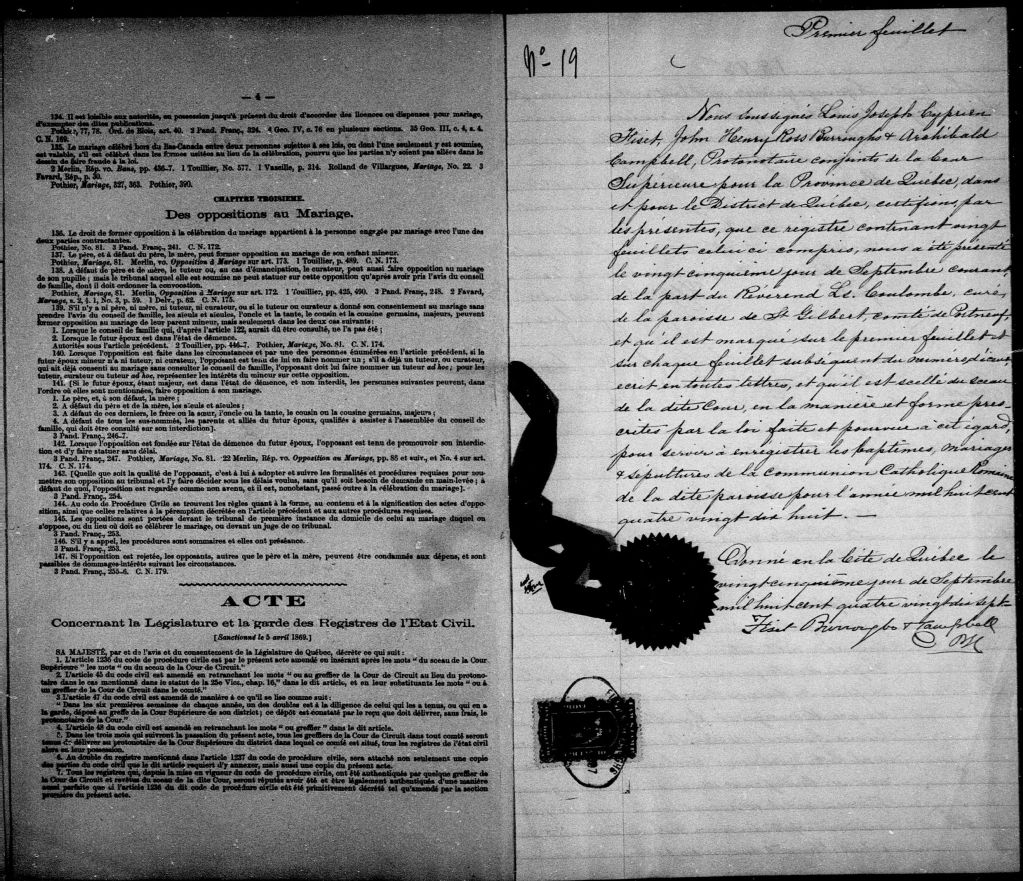 — 4 —
134. Il est loisible aux autorités, en possession jusqu'à présent du droit d'accorder des licences ou dispenses pour mariage,
d'exempter des dites publications.
Pothier, 77, 78. Ord. de Blois, art. 40. 2 Pand. Franç., 324. 4 Geo. IV, c. 76 en plusieurs sections. 35 Geo. III, c. 4, s. 4.
C. N. 169.
135. Le mariage célébré hors du Bas-Canada entre deux personnes sujettes à ses lois, ou dont l'une seulement y est soumise,
est valable, s'il est célébré dans les formes usitées au lieu de la célébration, pourvu que les parties n'y soient pas allées dans le
dessin de faire fraude à la loi.
2 Merlin, Rép. vo. Bans, pp. 456-7. 1 Touillier, No. 577. 1 Vazeille, p. 314. Rolland de Villargues, Mariage, No. 22. 3
Favard, Rép., p. 30.
Pothier, Mariage, 327, 363. Pothier, 390.
CHAPITRE TROISIEME.
Des oppositions au Mariage.
136. Le droit de former opposition à la célébration du mariage appartient à la personne engagée par mariage avec l'une des
deux parties contractantes.
Pothier, No. 81. 3 Pand. Franç., 241. C. N. 172.
137. Le père, et à défaut du père, la mère, peut former opposition au mariage de son enfant mineur.
Pothier, Mariage, 81. Merlin, vo. Opposition à Mariage sur art. 173. 1 Touillier, p. 489. C. N. 173.
138. A défaut de père et de mère, le tuteur ou, au cas d'émancipation, le curateur, peut aussi faire opposition au mariage
de son pupille; mais le tribunal auquel elle est soumise ne peut statuer sur cette opposition qu'après avoir pris l'avis du conseil
de famille, dont il doit ordonner la convocation.
Pothier, Mariage, 81. Merlin, Opposition à Mariage sur art. 172. 1 Touillier, pp. 425, 490. 3 Pand. Franç., 248. 2 Favard,
Mariage, s. 2, § 1, No. 3, p. 59. 1 Delv., p. 62. C. N. 175.
139. S'il n'y a ni père, ni mère, ni tuteur, ni curateur, ou si le tuteur ou curateur a donné son consentement au mariage sans
prendre l'avis du conseil de famille, les aïeuls et aïeules, l'oncle et la tante, le cousin et la cousine germains, majeurs, peuvent
former opposition au mariage de leur parent mineur, mais seulement dans les deux cas suivants:
1. Lorsque le conseil de famille qui, d'après l'article 122, aurait dû être consulté, ne l'a pas été;
2. Lorsque le futur époux est dans l'état de démence.
Autorités sous l'article précédent. 2 Touillier, pp. 466-7. Pothier, Mariage, No. 81. C. N. 174.
140. Lorsque l'opposition est faite dans ce circonstances et par une des personnes énumérées en l'article précédent, si le
futur époux mineur n'a ni tuteur, ni curateur, l'opposant est tenu de lui en faire nommer un; s'il a déjà un tuteur, ou curateur,
qui ait déjà consenti au mariage sans consulter le conseil de famille, l'opposant doit lui faire nommer un tuteur ad hoc; pour les
tuteur, curateur ou tuteur ad hoc, représenter les intérêts du mineur sur cette opposition.
141. [Si le futur époux, étant majeur, est dans l'état de démence, et non interdit, les personnes suivantes peuvent, dans
l'ordre où elles sont mentionnées, faire opposition à son mariage.
1. Le père, et, à son défaut, la mère;
2. A défaut du père et de la mère, les aïeuls et aïeules;
3. A défaut de ces derniers, le frère ou la sœur, l'oncle ou la tante, le cousin ou la cousine germains, majeurs;
4. A défaut de tous les sus-nommés, les parents et alliés du futur époux, qualifiés à assister à l'assemblée du conseil de
famille, qui doit être consulté sur son interdiction].
3 Pand. Franç., 246-7.
142. Lorsque l'opposition est fondée sur l'état de démence du futur époux, l'opposant est tenu de promouvoir son interdic-
tion et d'y faire statuer sans délai.
3 Pand. Franç., 247. Pothier, Mariage, No. 81. 22 Merlin, Rép. vo. Opposition au Mariage, pp. 85 et suiv., et No. 4 sur art.
174. C. N. 174.
143. [Quelle que soit la qualité de l'opposant, c'est à lui à adopter et suivre les formalités et procédures requises pour sou-
mettre son opposition au tribunal et l'y faire décider sous les délais voulus, sans qu'il soit besoin de demande en main-levée; à
défaut de quoi, l'opposition est regardée comme non avenu, et il est, nonobstant, passé outre à la célébration du mariage].
3 Pand. Franç., 254.
144. Au code de Procédure Civile se trouvent les règles quant à la forme, au contenu et à la signification des actes d'oppo-
sition, ainsi que celles relatives à la péremption décrétée en l'article précédent et aux autres procédures requises.
145. Les oppositions sont portées devant le tribunal de première instance du domicile de celui au mariage duquel on
s'oppose, ou du lieu où doit se célébrer le mariage, ou devant un juge de ce tribunal.
3 Pand. Franç., 253.
146. S'il y a appel, les procédures sont sommaires et elles ont préséance.
3 Pand. Franç., 253.
147. Si l'opposition est rejetée, les opposants, autres que le père et la mère, peuvent être condamnés aux dépens, et sont
passibles de dommages-intérêts suivant les circonstances.
3 Pand. Franç., 255-6. C. N. 179.
ACTE
Concernant la Législature et la garde des Registres de l'Etat Civil.
[Sanctionné le 5 avril 1869.]
SA MAJESTÉ, par et de l'avis et du consentement de la Législature de Québec, décrète ce qui suit:
1. L'article 1236 du code de procédure civile est par le présent acte amendé en insérant après les mots " du sceau de la Cour
Supérieure " les mots " ou du sceau de la Cour de Circuit."
2. L'article 45 du code civil est amendé en retranchant les mots " ou au greffier de la Cour de Circuit au lieu du protono-
taire dans le cas mentionné dans le statut de la 25e Vict., chap. 16," dans le dit article, et en leur substituants les mots " ou à
un greffier de la Cour de Circuit dans le comté."
3 L'article 47 du code civil est amendé de manière à ce qu'il se lise comme suit:
" Dans les six premières semaines de chaque année, un des doubles est à la diligence de celui qui les a tenus, ou qui en a
la garde, déposé au greffe de la Cour Supérieure de son district; ce dépôt est constaté par le reçu que doit délivrer, sans frais, le
protonotaire de la Cour."
4. L'article 48 du code civil est amendé en retranchant les mots " ou greffier " dans le dit article.
5. Dans les trois mois qui suivront la passation du présent acte, tous les greffiers de la Cour de Circuit dans tout comté seront
tenus de délivrer au protonotaire de la Cour Supérieure du district dans lequel ce comté est situé, tous les registres de l'état civil
alors en leur possession.
6. Au double du registre mentionné dans l'article 1237 du code de procédure civile, sera attaché non seulement une copie
des parties du code civil que le dit article requiert d'y annexer, mais aussi une copie du présent acte.
7. Tous les registres qui, depuis la mise en vigueur du code de procédure civile, ont été authentiqués par quelque greffier de
la Cour de Circuit et revêtus du sceau de la dite Cour, seront réputés avoir été et être légalement authentiqués d'une manière
aussi parfaite que si l'article 1236 du dit code de procédure civile eût été primitivement décrété tel qu'amendé par la section
première du présent acte.
Premier feuillet
No 19
Nous soussignés Louis Joseph Cyprien
Fiset, John Henry Ross Burroughs & Archibald
Campbell, Protonotaire conjoints de la Cour
Supérieure pour la Province de Québec, dans
et pour le District de Québec, certifions par
les présentes, que ce registre contenant vingt
feuillets celui ci compris, nous a été présenté
le vingt cinquième jour de Septembre courant,
de la part du Révérend Ls. Coulombe, curé,
de la paroisse de St Gilbert, comté de Portneuf,
et qu'il est marqué sur le premier feuillet et
sur chaque feuillet subséquent du numero d'icelui
écrit en toutes lettres, et qu'il est scellé du sceau
de la dite Cour, en la manière et forme pres-
crites par la loi faite et pourvue à cet égard,
pour servir à enregistrer les baptêmes, mariages
& sépultures de la Communion Catholique Romaine
de la dite paroisse pour l'année mil huit cent
quatre vingt dix huit. —
Donné en la Cité de Québec le
vingt cinquième jour de Septembre
mil huit cent quatre vingt dix sept-
Fiset Burroughs & Campbell